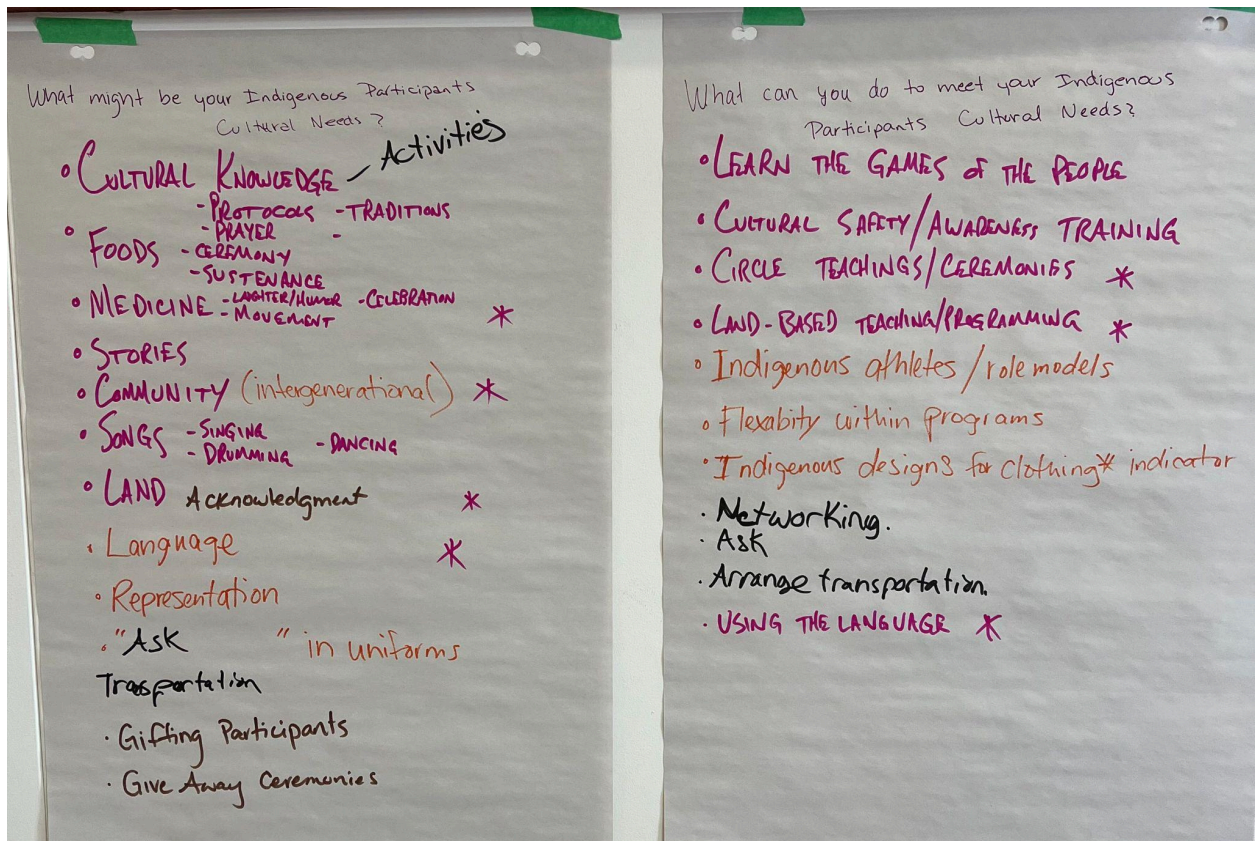 What might be your Indigenous Participants
Cultural Needs?
• CULTURAL KNOWLEDGE — Activities
- PROTOCOLS - TRADITIONS
- PRAYER -
• FOODS - CEREMONY
- SUSTENANCE
• MEDICINE - LAUGHTER/HUMOR - CELEBRATION
- MOVEMENT *
• STORIES
• COMMUNITY (intergenerational) *
• SONGS - SINGING
- DRUMMING - DANCING
• LAND Acknowledgment *
• Language *
• Representation
• "Ask " in uniforms
Trasportation
• Gifting Participants
• Give Away Ceremonies
What can you do to meet your Indigenous
Participants Cultural Needs?
• LEARN THE GAMES of THE PEOPLE
• CULTURAL SAFETY/AWARENESS TRAINING
• CIRCLE TEACHINGS/CEREMONIES *
• LAND-BASED TEACHING/PROGRAMMING *
• Indigenous athletes/role models
• Flexabity within programs
• Indigenous designs for clothing* indicator
• Networking.
• Ask
• Arrange transportation.
• USING THE LANGUAGE *